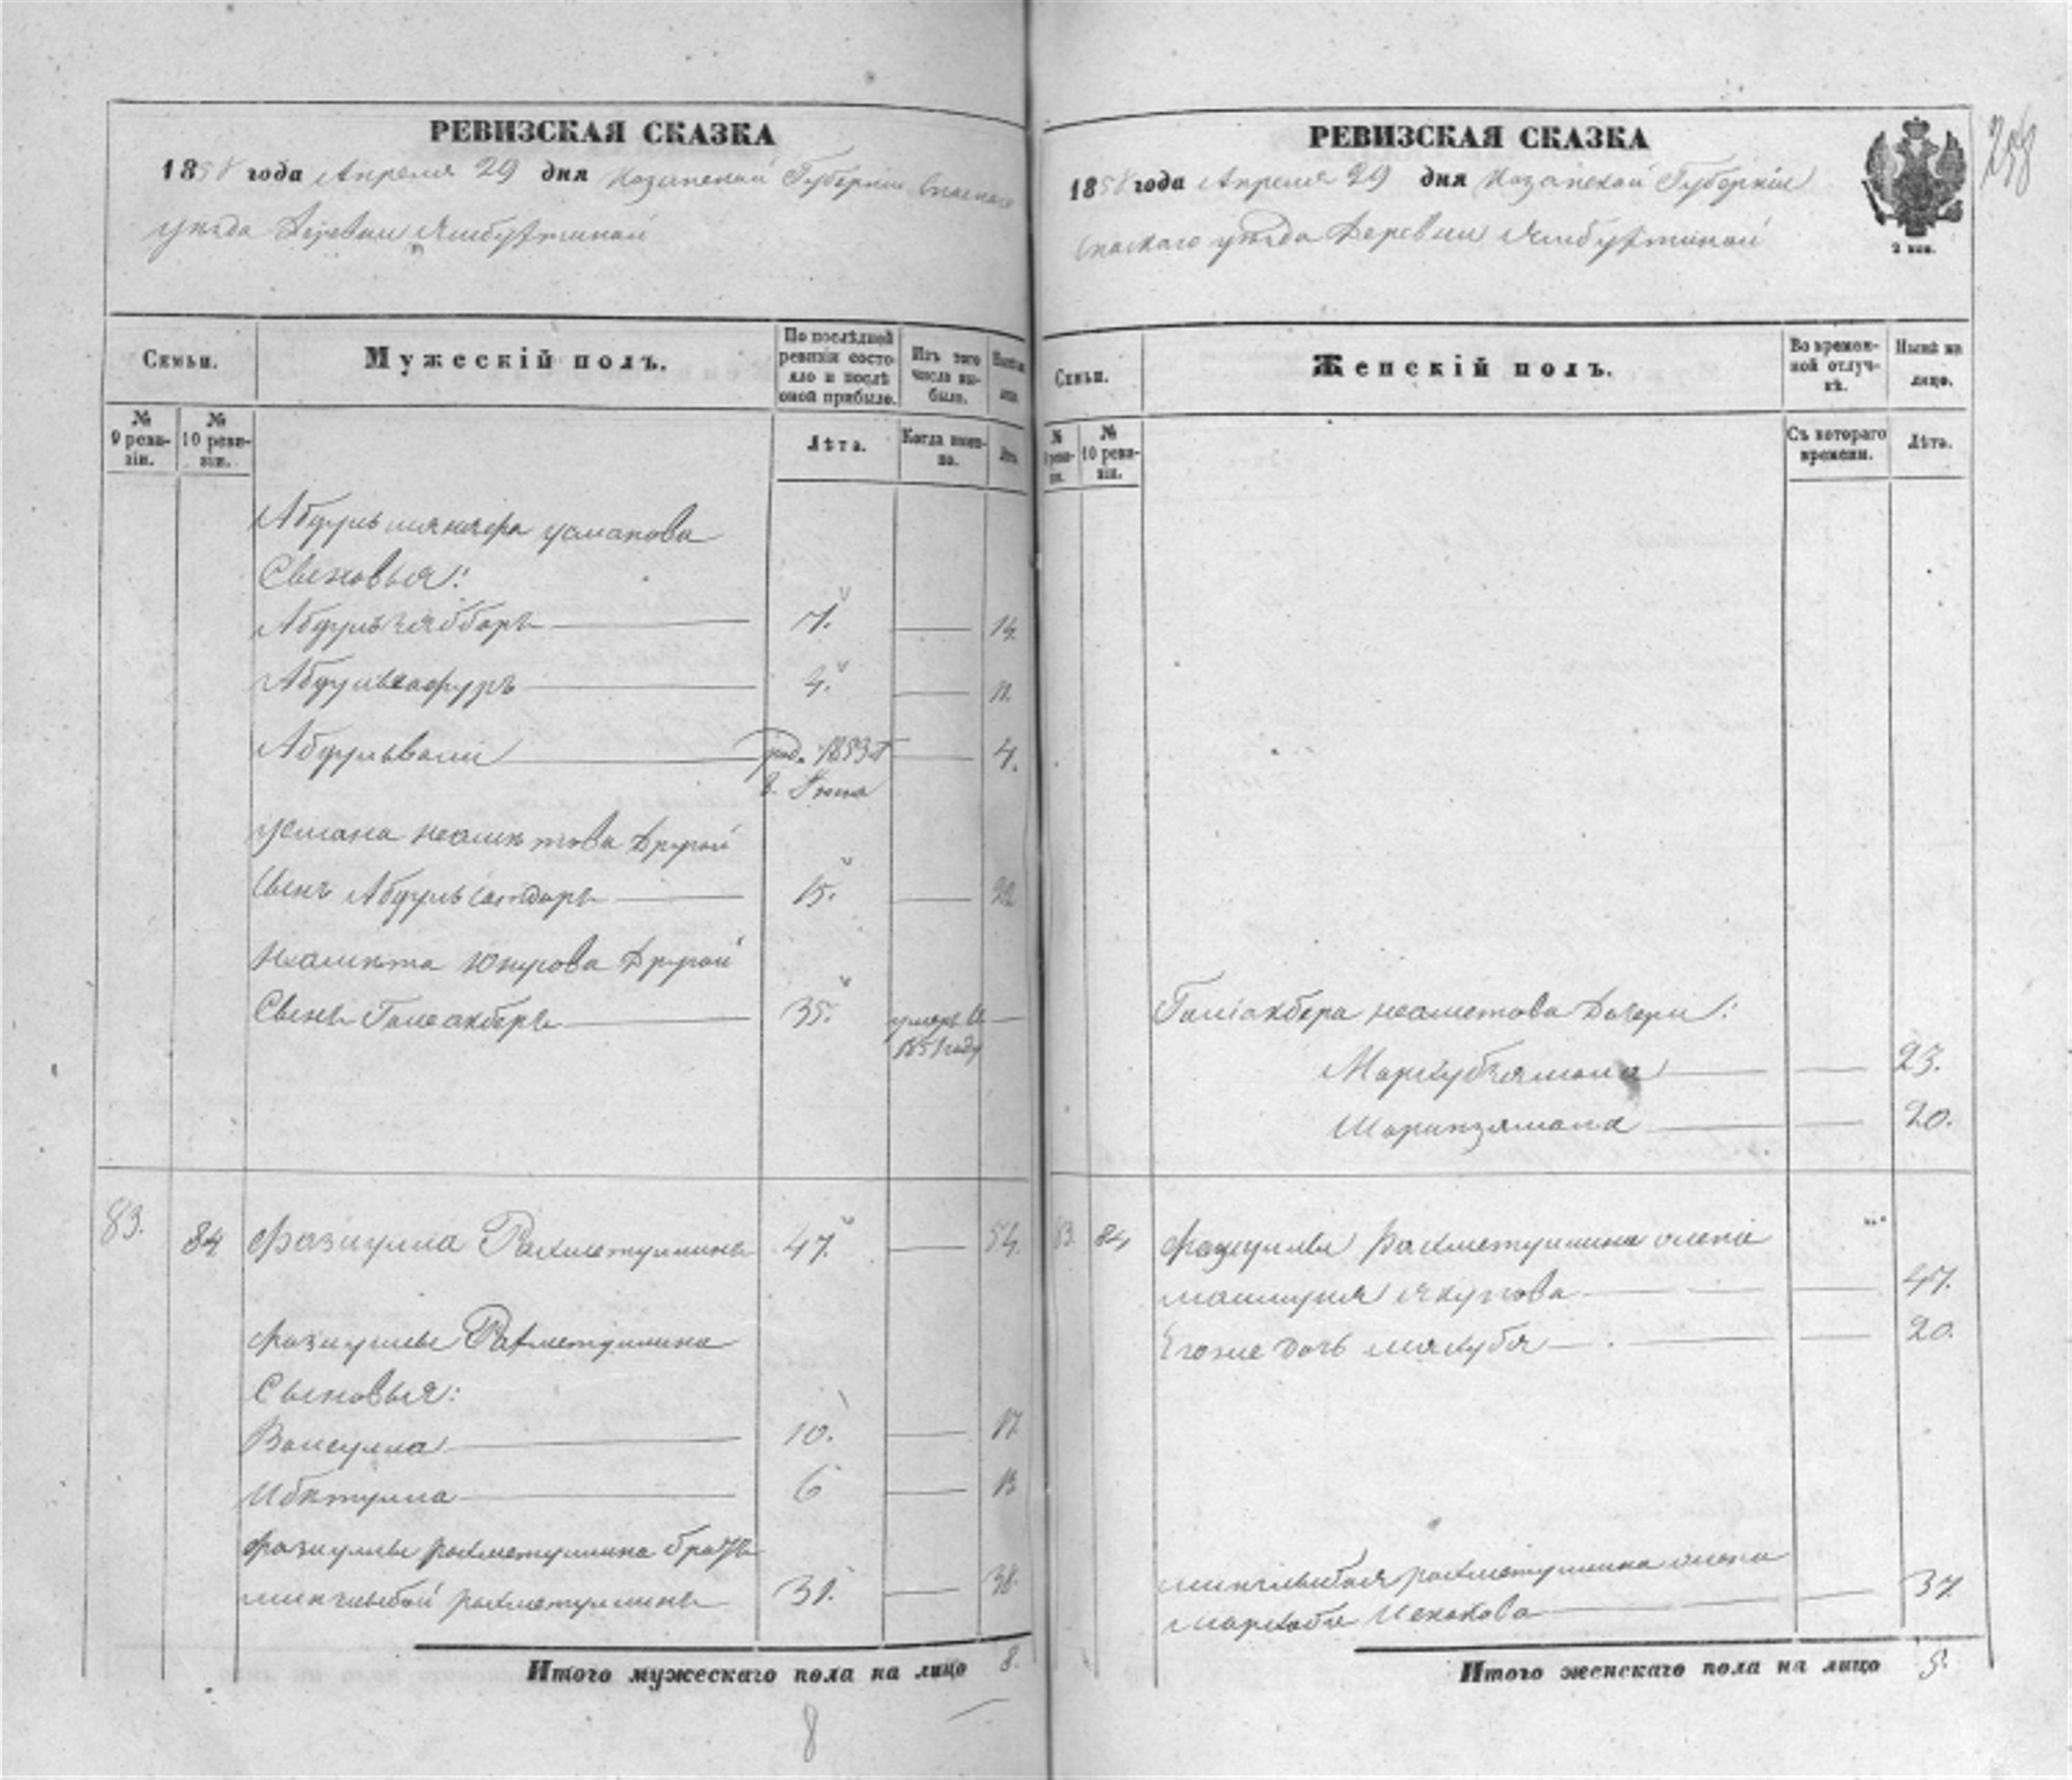 РЕВИЗСКАЯ СКАЗКА
1858 года Апреля 29 дня Казанской Губернии Спаскаго
уезда Деревни Ямбухтиной
Семьи.
Мужескій полъ.
По послѣдней ревизіи состояло и послѣ оной прибыло.
Изъ того числа выбыло.
№ 9 ревизіи.
№ 10 ревизіи.
Лѣта.
Когда именно.
Лѣта.
Сыновья:
7. — 14.
4. — 11.
Абдулвали — род. 1853 — 4.
Усмана Неаметова Другой
Сынъ Абдулъ — 15. — 22
Неамета Юнусова Другой
Сынъ Галеакберъ — 35. умеръ в —
1851 году
83. 84 Фазиулла Рахметуллинъ 47. — 54.
Фазиуллы Рахметуллина
Сыновья:
Валиулла — 10. — 17.
Ибетулла — 6 — 13
Фазиуллы Рахметуллина братъ
Рахметуллинъ 31. — 38.
Итого мужескаго пола на лицо 8.
8
РЕВИЗСКАЯ СКАЗКА
258
1858 года Апреля 29 дня Казанской Губернии
Спаскаго уезда Деревни Ямбухтиной
2 коп.
Семьи.
Женскій полъ.
Во временной отлучкѣ.
Нынѣ на лицо.
№ 9 ревизіи.
№ 10 ревизіи.
Съ котораго времени.
Лѣта.
Галіакбера Неаметова Дочери:
— — 23.
— — 20.
83. 84 Фазиуллы Рахметуллина жена
Якупова — — 47.
Егоже дочь — — 20.
Рахметуллина жена
— — 37.
Итого женскаго пола на лицо 5.